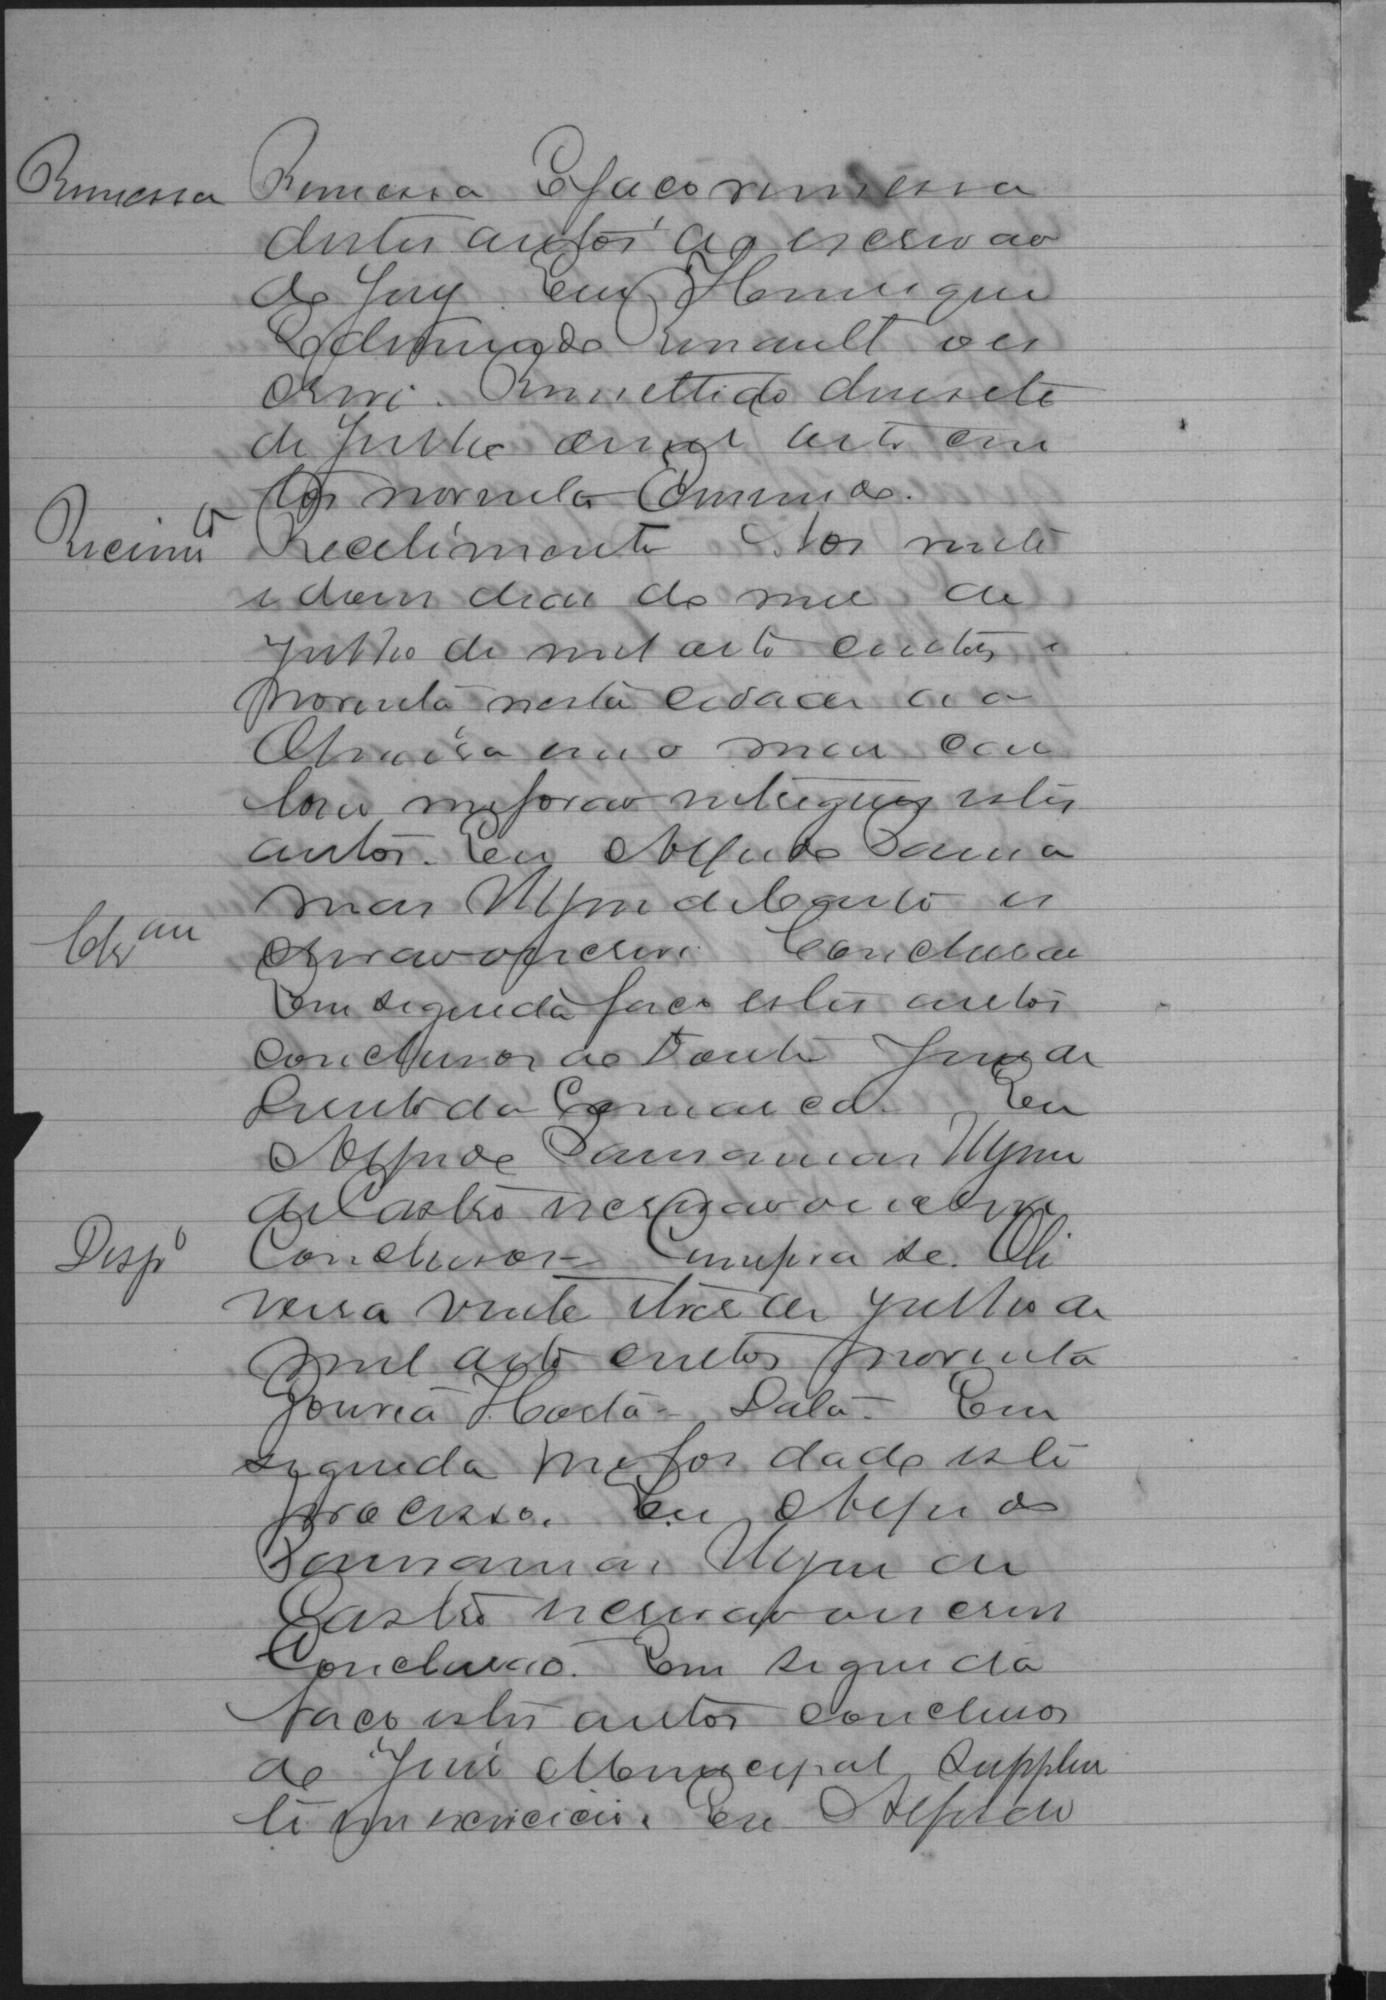 Remessa Remessa E faço remessa
destes autos ao escrivão
do Jury. Eu, Henrique
Edmundo Renault o es
crevi. Remettido desesete
de Julho de mil oito cen
tos noventa
Recimto Recebimento Aos vinte
e dous dias do mez de
Julho de mil oito centos e
noventa nesta cidade da
Oliveira em o meu car
torio me forão entregues estes
autos. Eu Alfredo
de Castro es
crivão o escrevi. Conclusão
Clsam Em seguida faço estes autos
conclusos ao Doutor Juiz de
Direito da Comarca. Eu
Alfredo
de Castro escrivão o escrevi
Despo Conclusos - Cumpra se. Oli
veira vinte e tres de Julho de
mil oito centos noventa
Gouvêa Horta - Data - Em
seguida me foi dado este
processo. Eu Alfredo
de
Castro escrivão o escrevi
Conclusão. Em seguida
faço estes autos conclusos
ao Juiz Municipal Supplen
te em exercicio. Eu Alfredo